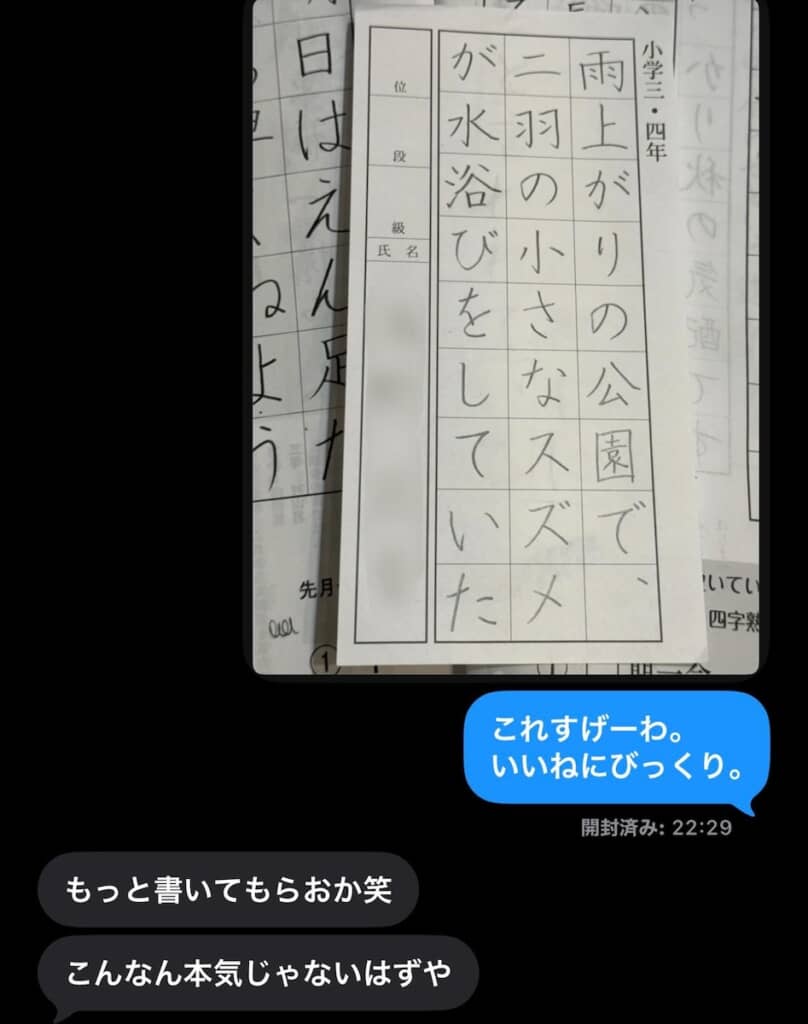 小学三・四年
雨上がりの公園で、
二羽の小さなスズメ
が水浴びをしていた
位
段
級
氏名
日はえん足
ねよう
かり秋の気配です
先月
①
四字熟
これすげーわ。
いいねにびっくり。
開封済み: 22:29
もっと書いてもらおか笑
こんなん本気じゃないはずや